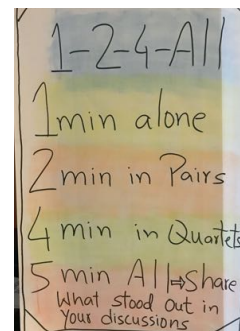 1-2-4-All
1 min alone
2 min in Pairs
4 min in Quartets
5 min All ⇒ Share
What stood out in
your discussions